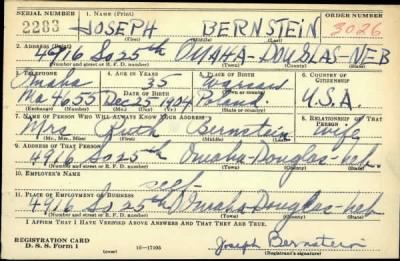 SERIAL NUMBER 1. NAME (Print) ORDER NUMBER
2283 JOSEPH BERNSTEIN 3026
(First) (Middle) (Last)
2. ADDRESS (Print)
4916 So 25th OMAHA-DOUGLAS-NEB
(Number and street or R. F. D. number) (Town) (County) (State)
3. TELEPHONE 4. AGE IN YEARS 5. PLACE OF BIRTH 6. COUNTRY OF CITIZENSHIP
Omaha 35
DATE OF BIRTH (Town or county)
Ma 4655 Dec 25 1904 Poland U.S.A.
(Exchange) (Number) (Mo.) (Day) (Yr.) (State or country)
7. NAME OF PERSON WHO WILL ALWAYS KNOW YOUR ADDRESS 8. RELATIONSHIP OF THAT PERSON
Mrs Ruth Bernstein Wife
(Mr., Mrs., Miss) (First) (Middle) (Last)
9. ADDRESS OF THAT PERSON
4916 So 25th Omaha-Douglas-neb.
(Number and street or R. F. D. number) (Town) (County) (State)
10. EMPLOYER'S NAME
self
11. PLACE OF EMPLOYMENT OR BUSINESS
4916 So 25th Omaha-Douglas-neb
(Number and street or R. F. D. number) (Town) (County) (State)
I AFFIRM THAT I HAVE VERIFIED ABOVE ANSWERS AND THAT THEY ARE TRUE.
REGISTRATION CARD
D. S. S. Form 1 16—17105 Joseph Bernstein